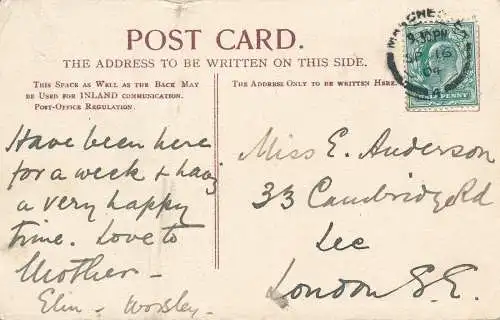 POST CARD.
THE ADDRESS TO BE WRITTEN ON THIS SIDE.
THIS SPACE AS WELL AS THE BACK MAY
BE USED FOR INLAND COMMUNICATION.
POST-OFFICE REGULATION.
THE ADDRESS ONLY TO BE WRITTEN HERE.
MANCHESTER
9.30PM
SP 16
04
PENNY
Have been here
for a week & havg
a very happy
time. Love to
Mother –
Elin – Worsley –
Miss E. Anderson
33 Cambridge Rd
Lee
London S.E.